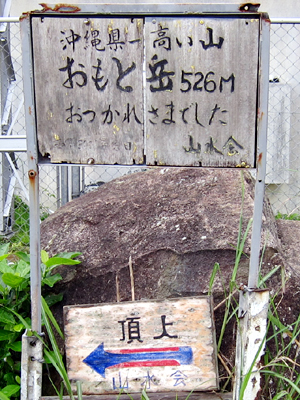 沖縄県一高い山
おもと岳526M
おつかれさまでした
山水会
頂上
山水会